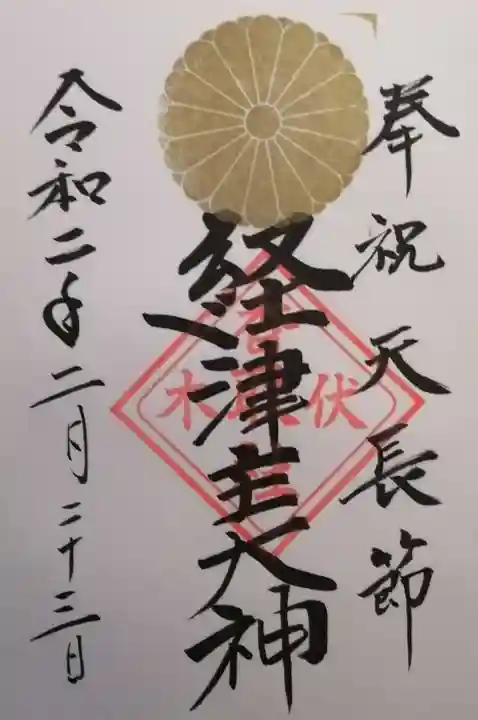 奉祝天長節
経津主大神
令和二年二月二十三日